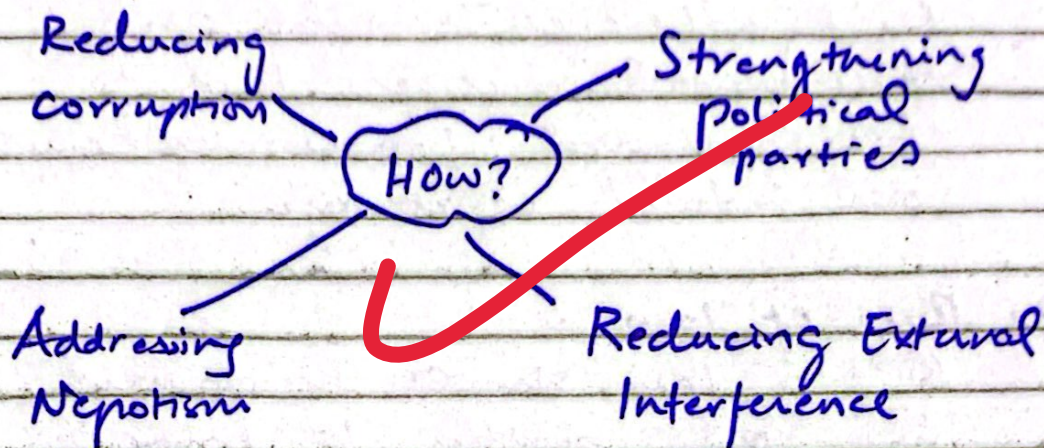 Reducing
corruption
Strengthening
political
parties
How?
Addressing
Nepotism
Reducing External
Interference